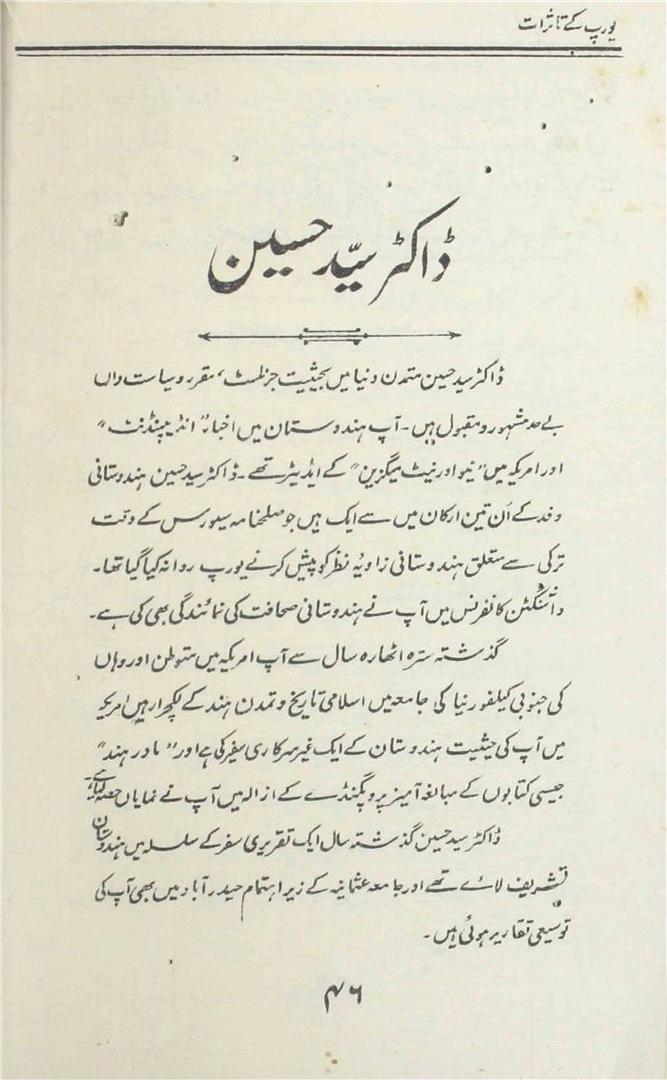 یورپ کے تاثرات
ڈاکٹر سیّد حسین
ڈاکٹر سید حسین متمدن دنیا میں بحیثیت جرنلسٹ، مقرر و سیاست داں
بے حد مشہور و مقبول ہیں۔ آپ ہندوستان میں اخبار "انڈیپنڈنٹ"
اور امریکہ میں "نیو اورنیٹ میگزین" کے ایڈیٹر تھے۔ ڈاکٹر سید حسین ہندوستانی
وفد کے اُن تین ارکان میں سے ایک ہیں جو صلحنامہ سیورس کے وقت
ترکی سے متعلق ہندوستانی زاویۂ نظر کو پیش کرنے یورپ روانہ کیا گیا تھا۔
واشنگٹن کانفرنس میں آپ نے ہندوستانی صحافت کی نمائندگی بھی کی ہے۔
گذشتہ سترہ اٹھارہ سال سے آپ امریکہ میں متوطن اور وہاں
کی جنوبی کیلفورنیا کی جامعہ میں اسلامی تاریخ و تمدن ہند کے لکچرار ہیں امریکہ
میں آپ کی حیثیت ہندوستان کے ایک غیر سرکاری سفیر کی ہے اور "مادر ہند"
جیسی کتابوں کے مبالغہ آمیز پروپگنڈے کے ازالہ میں آپ نے نمایاں حصہ لیا ہے۔
ڈاکٹر سید حسین گذشتہ سال ایک تقریری سفر کے سلسلہ میں ہندوستان
تشریف لائے تھے اور جامعہ عثمانیہ کے زیر اہتمام حیدرآباد میں بھی آپ کی
توسیعی تقاریر ہوئی ہیں۔
۴۶